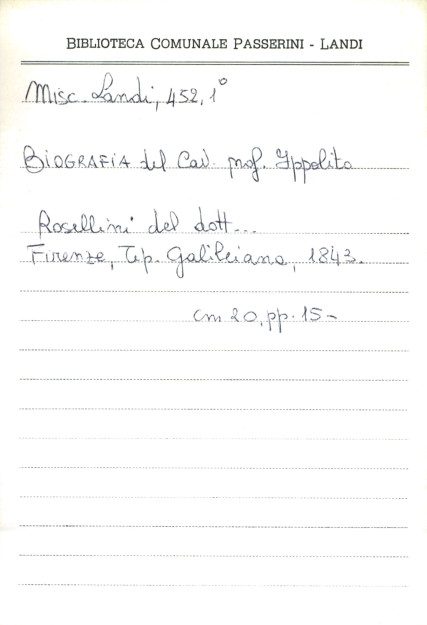 BIBLIOTECA COMUNALE PASSERINI - LANDI
Misc. Landi, 452, 1°
BIOGRAFIA del Cav. prof. Ippolito
Rosellini del dott...
Firenze, Tip. Galileiana, 1843.
cm 20, pp. 15-